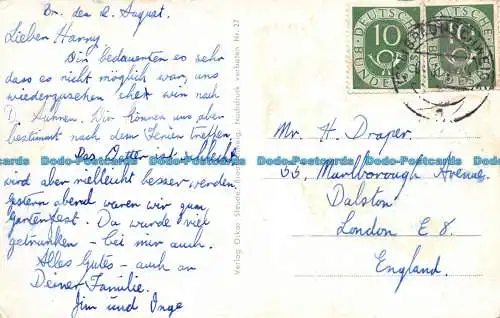 Br. den 12. August.
Lieber Harry
Wir bedauerten es sehr
dass es nicht möglich war, uns
wiederzusehen eher wir nach
D. fuhren. Wir können uns aber
bestimmt nach dem Ferien treffen.
Das Wetter ist schlecht
wird aber vielleicht besser werden.
Gestern abend waren wir zum
Gartenfest. Da wurde viel
getrunken – bei mir auch.
Alles Gutes – auch an
Deiner Familie.
Jim und Inge
Verlag Oskar Nachdruck verboten Nr. 27
DEUTSCHE BUNDESPOST
10
10
Mr. H. Draper.
55, Marlborough Avenue.
Dalston
London E 8.
England.
Dodo-Postcards Dodo-Postcards Dodo-Postcards Dodo-Postcards